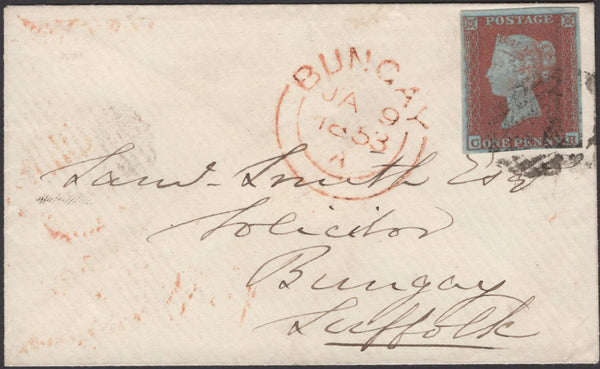 POSTAGE
ONE PENNY
BUNGAY
JA 9
1853
A
Saml. Smith Esqr
Solicitor
Bungay
Suffolk